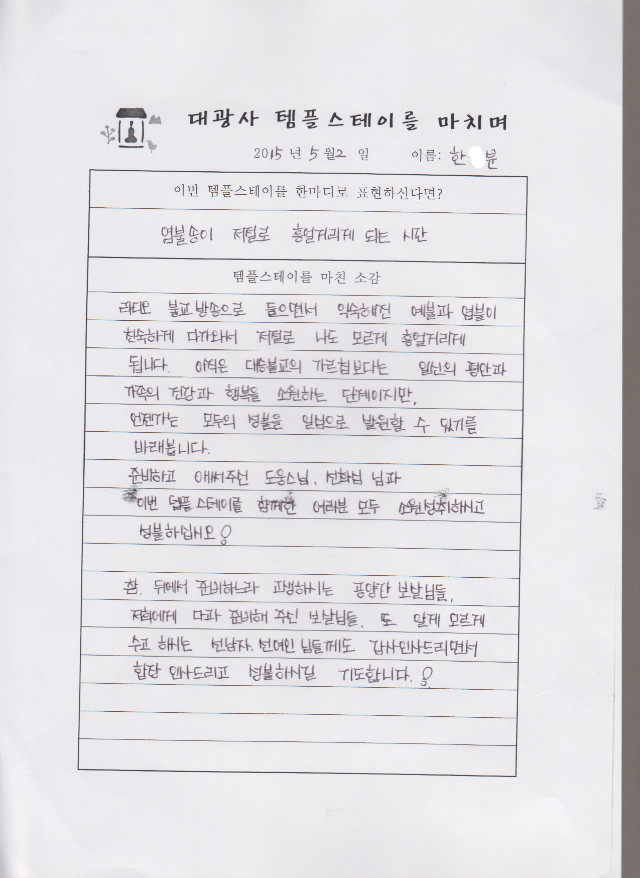 대광사 템플스테이를 마치며
2015 년 5 월 2 일 이름: 한 분
이번 템플스테이를 한마디로 표현하신다면?
염불송이 저절로 흥얼거리게 되는 시간
템플스테이를 마친 소감
라디오 불교방송으로 들으면서 익숙해진 예불과 염불이
친숙하게 다가와서 저절로 나도 모르게 흥얼거리게
됩니다. 아직은 대승불교의 가르침보다는 일신의 평안과
가족의 건강과 행복을 소원하는 단계이지만,
언젠가는 모두의 성불을 일심으로 발원할 수 있기를
바래봅니다.
준비하고 애써주신 도웅스님, 선화심 님과
이번 템플스테이를 함께한 여러분 모두 소원성취하시고
성불하십시오
참. 뒤에서 준비하느라 고생하시는 공양간 보살님들,
저희에게 다과 준비해 주신 보살님들, 또 알게 모르게
수고 하시는 선남자. 선여인 님들께도 감사인사드리면서
합장 인사드리고 성불하시길 기도합니다.